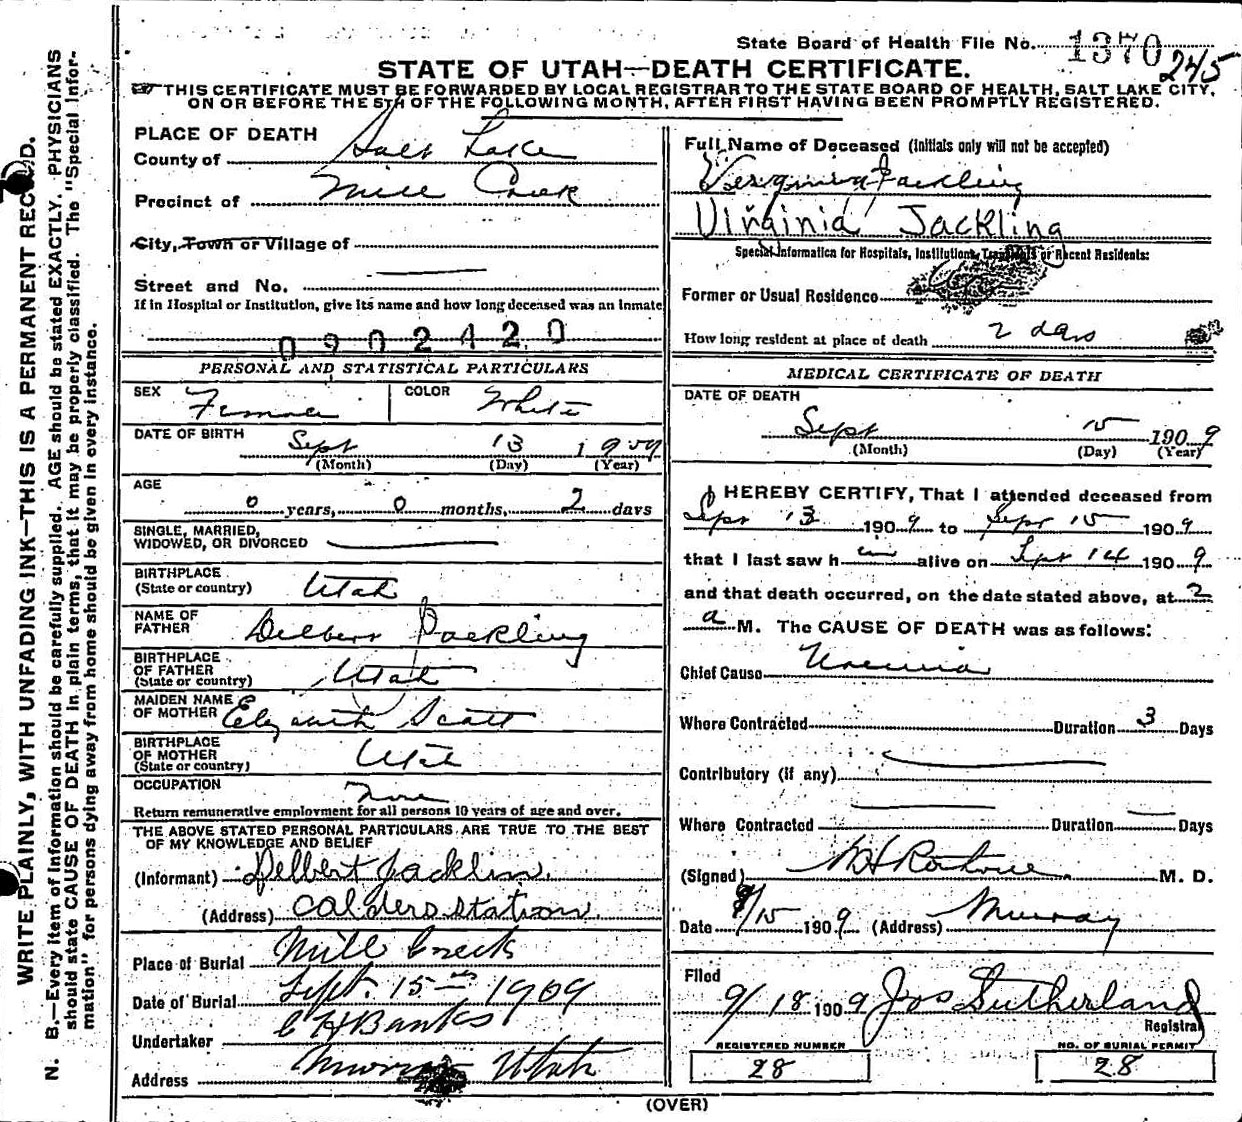 State Board of Health File No. 1370
245
STATE OF UTAH—DEATH CERTIFICATE.
THIS CERTIFICATE MUST BE FORWARDED BY LOCAL REGISTRAR TO THE STATE BOARD OF HEALTH, SALT LAKE CITY,
ON OR BEFORE THE 5TH OF THE FOLLOWING MONTH, AFTER FIRST HAVING BEEN PROMPTLY REGISTERED.
WRITE PLAINLY, WITH UNFADING INK—THIS IS A PERMANENT RECORD.
N. B.—Every item of information should be carefully supplied. AGE should be stated EXACTLY. PHYSICIANS
should state CAUSE OF DEATH in plain terms, that it may be properly classified. The "Special Infor-
mation" for persons dying away from home should be given in every instance.
PLACE OF DEATH
County of Salt Lake
Precinct of Mill Creek
City, Town or Village of
Street and No.
If in Hospital or Institution, give its name and how long deceased was an inmate
0902420
PERSONAL AND STATISTICAL PARTICULARS
SEX Female COLOR White
DATE OF BIRTH Sept 13 1909
(Month) (Day) (Year)
AGE
0 years, 0 months, 2 days
SINGLE, MARRIED,
WIDOWED, OR DIVORCED
BIRTHPLACE
(State or country) Utah
NAME OF
FATHER Delbert Jackling
BIRTHPLACE
OF FATHER
(State or country) Utah
MAIDEN NAME
OF MOTHER Elizabeth Scott
BIRTHPLACE
OF MOTHER
(State or country) Utah
OCCUPATION None
Return remunerative employment for all persons 10 years of age and over.
THE ABOVE STATED PERSONAL PARTICULARS ARE TRUE TO THE BEST
OF MY KNOWLEDGE AND BELIEF
(Informant) Delbert Jacklin
(Address) Calders station
Place of Burial Mill Creek
Date of Burial Sept. 15th 1909
Undertaker C H Banks
Address Murray Utah
Full Name of Deceased (Initials only will not be accepted)
Jackling
Virginia Jackling
Special Information for Hospitals, Institutions, Transients or Recent Residents:
Former or Usual Residence
How long resident at place of death 2 days
MEDICAL CERTIFICATE OF DEATH
DATE OF DEATH
Sept 15 1909
(Month) (Day) (Year)
I HEREBY CERTIFY, That I attended deceased from
Sept 13 1909 to Sept 15 1909
that I last saw h alive on Sept 14 1909
and that death occurred, on the date stated above, at 2
a M. The CAUSE OF DEATH was as follows:
Chief Cause Uremia
Where Contracted Duration 3 Days
Contributory (if any)
Where Contracted Duration Days
(Signed) M. D.
Date 9/15 1909 (Address) Murray
Filed
9/18 1909 Jos Sutherland
Registrar
REGISTERED NUMBER
28
NO. OF BURIAL PERMIT
28
(OVER)